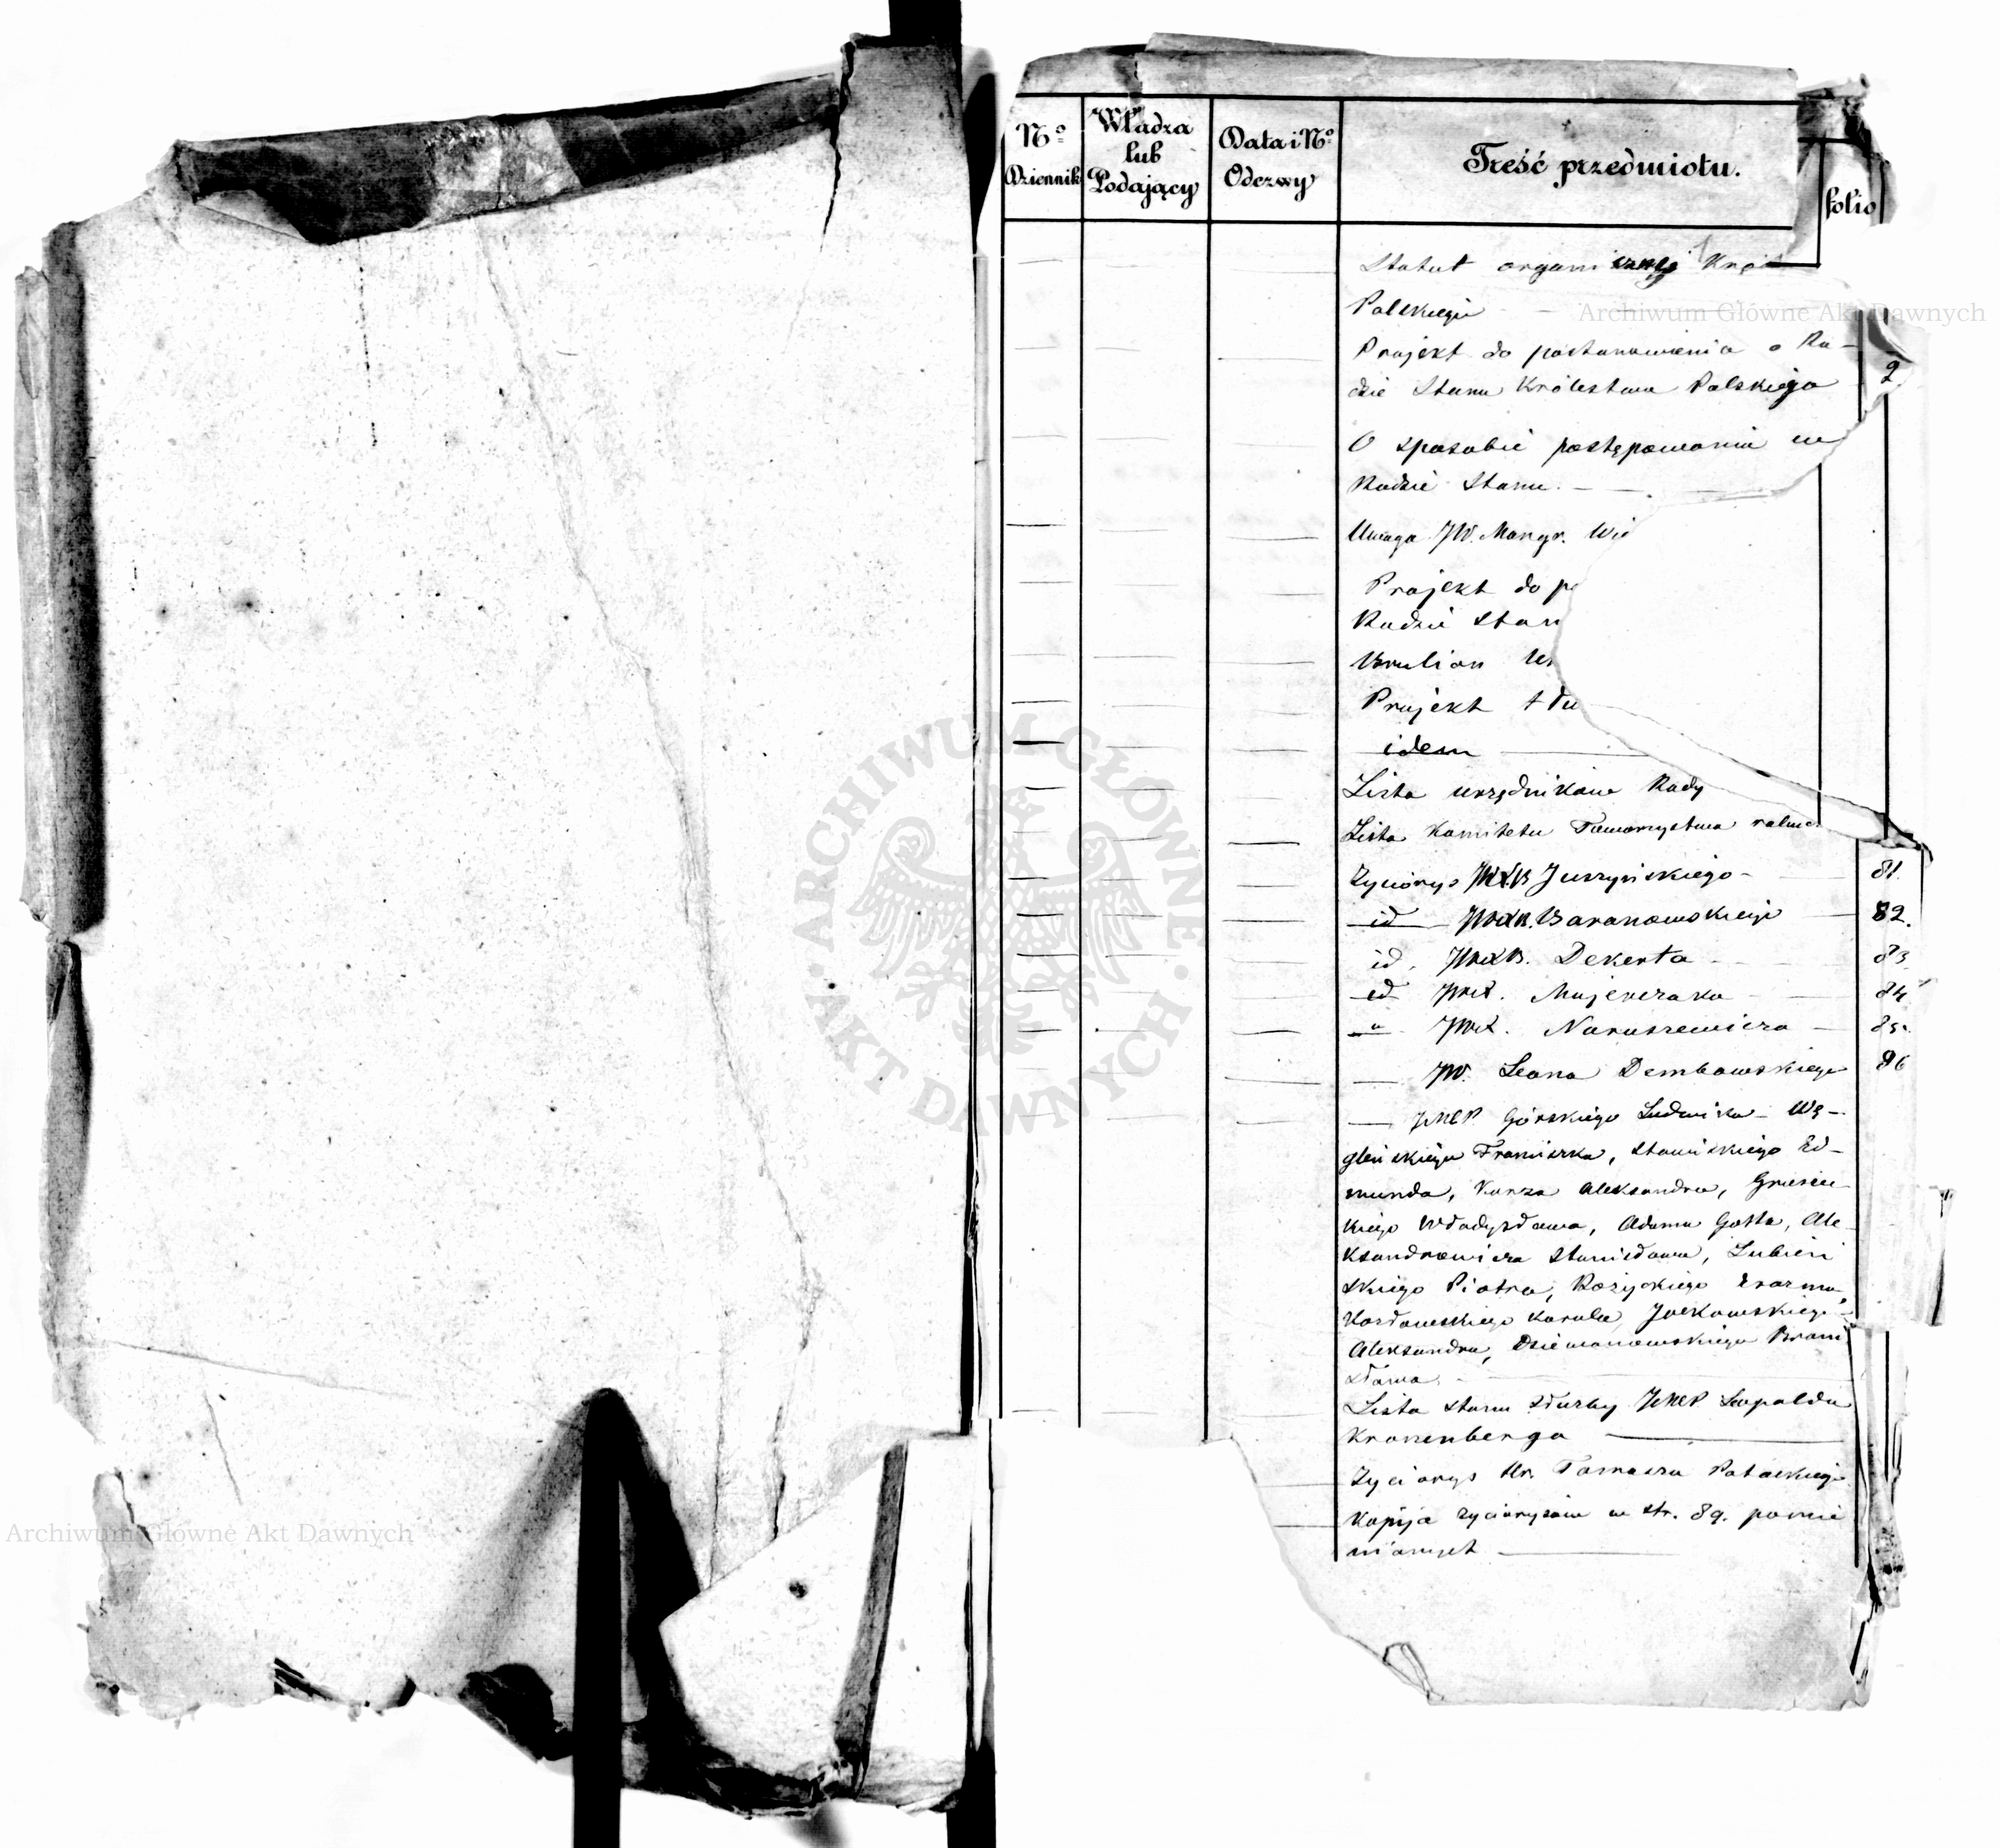 No
Dziennik
Władza
lub
Podający
Data i No
Odezwy
Treść przedmiotu.
folio
Statut organiczny Kró
Polskiego
Projekt do postanowienia o Ra-
dzie Stanu Królestwa Polskiego 2.
O sposobie postępowania w
Radzie Stanu.
Uwaga JW. Margr. Wie
Projekt do p
Radzie Stan
Brulion
Projekt
idem
Lista urzędników Rady
Lista Komitetu Towarzystwa rolnic
Życiorys JWXB Juszyńskiego 81.
id JWXB. Baranowskiego 82.
id. JWXB. Dekerta 83.
id JWX. Majerczaka 84
" JWX. Naruszewicza 85.
JW. Leona Dembowskiego 86
Górskiego Ludwika Wę-
gleńskiego Franciszka, Stawiskiego Ed-
munda, Kurza Aleksandra,
kiego Władysława, Adama Goltz, Ale-
ksandrowicza Stanisława, Łubień
skiego Piotra, Różyckiego Erazma,
Karola,
Aleksandra, Dziewanowskiego Broni
sława.
Lista stanu służby Leopolda
Kronenberga
Życiorys Hr. Tomasza Potockiego
Kopija życiorysów w str. 89. pomie
nionych
Archiwum Główne Akt Dawnych
Archiwum Główne Akt Dawnych
ARCHIWUM GŁÓWNE
AKT DAWNYCH